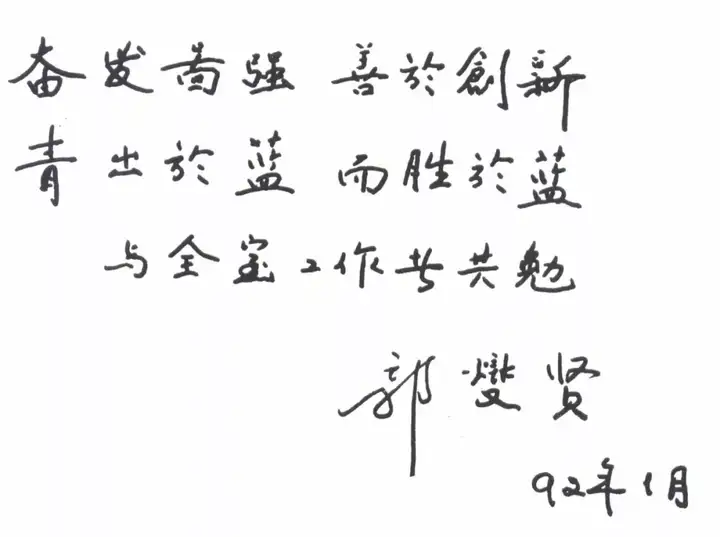 奋发啚强 善於創新
青出於蓝 而胜於蓝
与全室工作者共勉
郭燮贤
92年1月